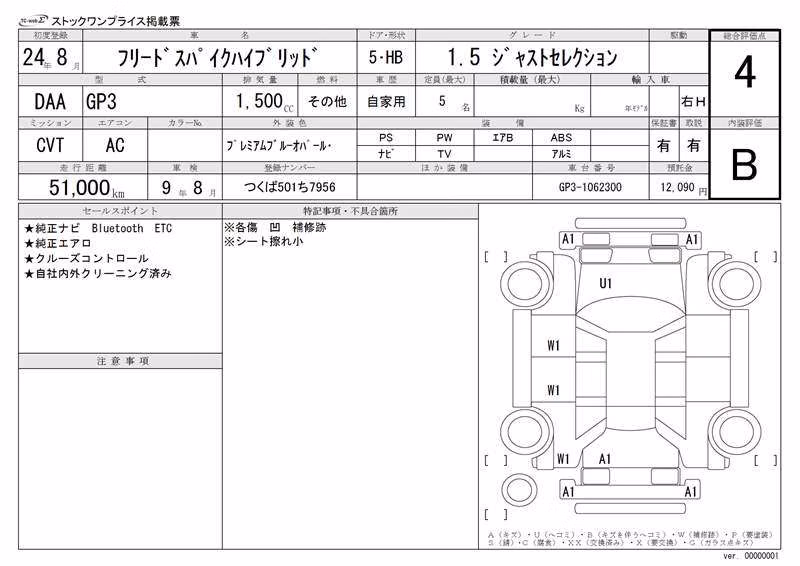 TC-webΣ ストックワンプライス掲載票
初度登録 車名 ドア・形状 グレード 駆動 総合評価点
24年8月 フリードスパイクハイブリッド 5・HB 1.5 ジャストセレクション 4
型式 排気量 燃料 車歴 定員(最大) 積載量(最大) 輸入車
DAA GP3 1,500CC その他 自家用 5名 Kg 年モデル 右H
ミッション エアコン カラーNo. 外装色 装備 保証書 取説 内装評価
CVT AC プレミアムブルーオパール・ PS PW エアB ABS 有 有 B
ナビ TV アルミ
走行距離 車検 登録ナンバー ほか装備 車台番号 預託金
51,000km 9年8月 つくば501ち7956 GP3-1062300 12,090円
セールスポイント
★純正ナビ Bluetooth ETC
★純正エアロ
★クルーズコントロール
★自社内外クリーニング済み
注意事項
特記事項・不具合箇所
※各傷 凹 補修跡
※シート擦れ小
A1 A1
[ ] [ ]
U1
W1
W1
[ ] W1 A1 [ ]
A1 A1
[ ]
A(キズ)・U(ヘコミ)・B(キズを伴うヘコミ)・W(補修跡)・P(要塗装)
S(錆)・C(腐食)・XX(交換済み)・X(要交換)・G(ガラス点キズ)
ver. 00000001